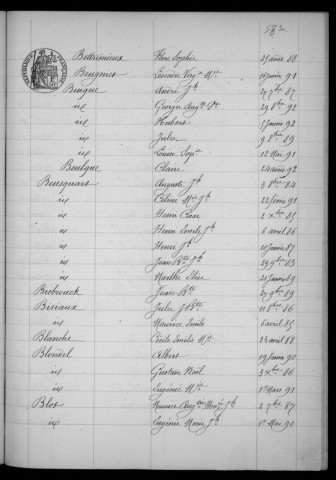 Bettremieux Flore Sophie 25 août 88
Beugnies Léonie Virg.ie M.ie 16 janv 91
Beugne André J.h 27 7bre 87
id Georges Aug.te 29 8bre 92
id Hubert 5 janv 92
id Jules 9 8bre 89
id Louise 12 Mai 91
Beulque Claire 24 août 92
Beusquart Auguste J.h 3 8bre 84
id Céline M.ie J.h 22 févr 91
id Henri César 2 Xbre 85
id Henri Emile J.h 6 avril 86
id Henri J.h 10 janv 87
id Jean B.te J.h 29 9bre 83
id Marthe Elise 21 janv 89
Bisbrouck Jean B.te 29 9bre 89
Biseaux Julie J B.te 11 8bre 86
id Maurice Emile 6 avril 85
Blanche Cécile Emilie M.ie 23 avril 88
Blondel Albert 19 janv 90
id Gustave Noël 3 Xbre 86
id Eugénie M.ie 1er Mars 91
Blot Maurice Aug.te Henri J.h 2 7bre 87
id Eugénie Marie J.h 1er Mai 90